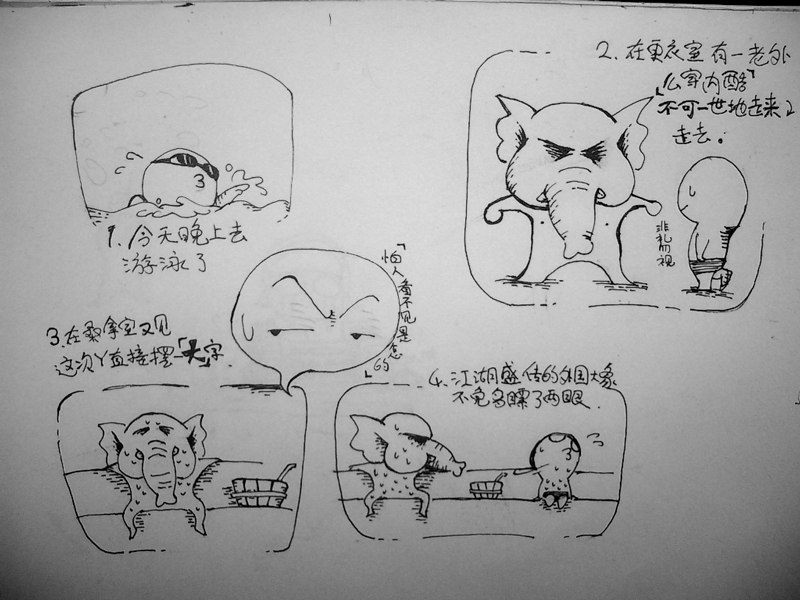 1. 今天晚上去
游泳了
2. 在更衣室有一老外
「公牢内酷」
不可一世地走来
走去。
非礼勿视
3. 在桑拿室又见
这次丫直接摆一「大」字.
「怕人看不见是怎的」
4. 江湖盛传的外国大象
不免多瞟了两眼.